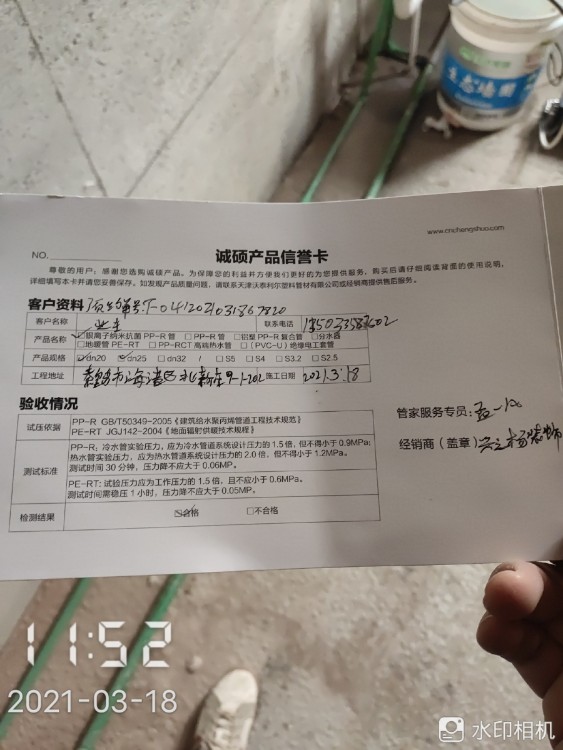 生态墙固
www.cnchengshuo.com
NO.
诚硕产品信誉卡
尊敬的用户：感谢您选购诚硕产品。为保障您的利益并方便我们更好的为您提供服务，购买后请仔细阅读背面的使用说明，
详细填写本卡并请您妥善保存。如发现产品质量问题，请联系天津沃泰利尔塑料管材有限公司或经销商提供售后服务。
客户资料 质保编号:T-0412021031367820
客户名称 业主 联系电话
产品名称 ☑银离子纳米抗菌PP-R管 □PP-R管 □铝塑PP-R复合管 □分水器
□地暖管PE-RT □PP-RCT高端热水管 □(PVC-U)绝缘电工套管
产品规格 ☑dn20 ☑dn25 □dn32 / □S5 □S4 □S3.2 □S2.5
工程地址 秦皇岛市海港区 9-1-202 施工日期 2021.3.18
验收情况
试压依据 PP-R GB/T50349-2005《建筑给水聚丙烯管道工程技术规范》
PE-RT JGJ142-2004《地面辐射供暖技术规程》
测试标准 PP-R：冷水管实验压力，应为冷水管道系统设计压力的1.5倍，但不得小于0.9MPa;
热水管实验压力，应为热水管道系统设计压力的2.0倍，但不得小于1.2MPa。
测试时间30分钟，压力降不应大于0.06MP。
PE-RT: 试验压力应为工作压力的1.5倍，且不应小于0.6MPa。
测试时间需稳压1小时，压力降不应大于0.05MP。
检测结果 ☑合格 □不合格
管家服务专员:
经销商（盖章）
11:52
2021-03-18
水印相机